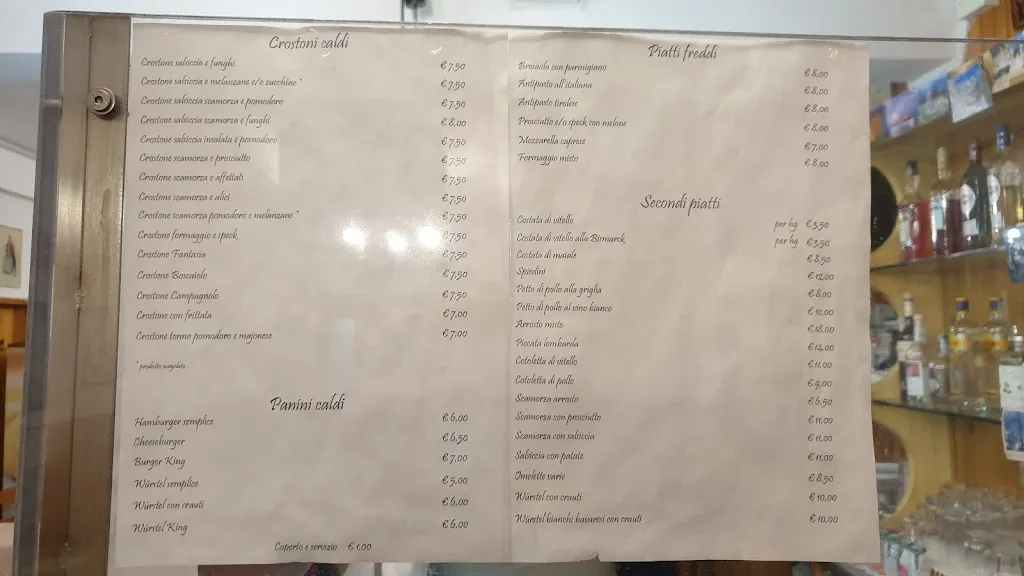 Crostoni caldi
Crostone salsiccia e funghi € 7,50
Crostone salsiccia e melanzane e/o zucchine * € 7,50
Crostone salsiccia scamorza e pomodoro € 7,50
Crostone salsiccia scamorza e funghi € 8,00
Crostone salsiccia insalata e pomodoro € 7,50
Crostone scamorza e prosciutto € 7,50
Crostone scamorza e affettati € 7,50
Crostone scamorza e alici € 7,50
Crostone scamorza pomodoro e melanzane * € 7,50
Crostone formaggio e speck € 7,50
Crostone Fantasia € 7,50
Crostone Boscaiolo € 7,50
Crostone Campagnolo € 7,50
Crostone con frittata € 7,00
Crostone tonno pomodoro e majonese € 7,00
* prodotto surgelato
Panini caldi
Hamburger semplice € 6,00
Cheeseburger € 6,50
Burger King € 7,00
Würstel semplice € 5,00
Würstel con crauti € 6,00
Würstel King € 6,00
Coperto e servizio € 1,00
Piatti freddi
Bresaola con parmigiano € 8,00
Antipasto all'italiana € 8,00
Antipasto tirolese € 8,00
Prosciutto e/o speck con melone € 8,00
Mozzarella caprese € 7,00
Formaggio misto € 8,00
Secondi piatti
Costata di vitello per hg € 3,50
Costata di vitello alla Bismarck per hg € 3,50
Costata di maiale € 8,50
Spiedini € 12,00
Petto di pollo alla griglia € 8,00
Petto di pollo al vino bianco € 10,00
Arrosto misto € 18,00
Piccata lombarda € 14,00
Cotoletta di vitello € 11,00
Cotoletta di pollo € 9,00
Scamorza arrosto € 6,50
Scamorza con prosciutto € 11,00
Scamorza con salsiccia € 11,00
Salsiccia con patate € 11,00
Omelette varie € 8,50
Würstel con crauti € 10,00
Würstel bianchi bavaresi con crauti € 10,00